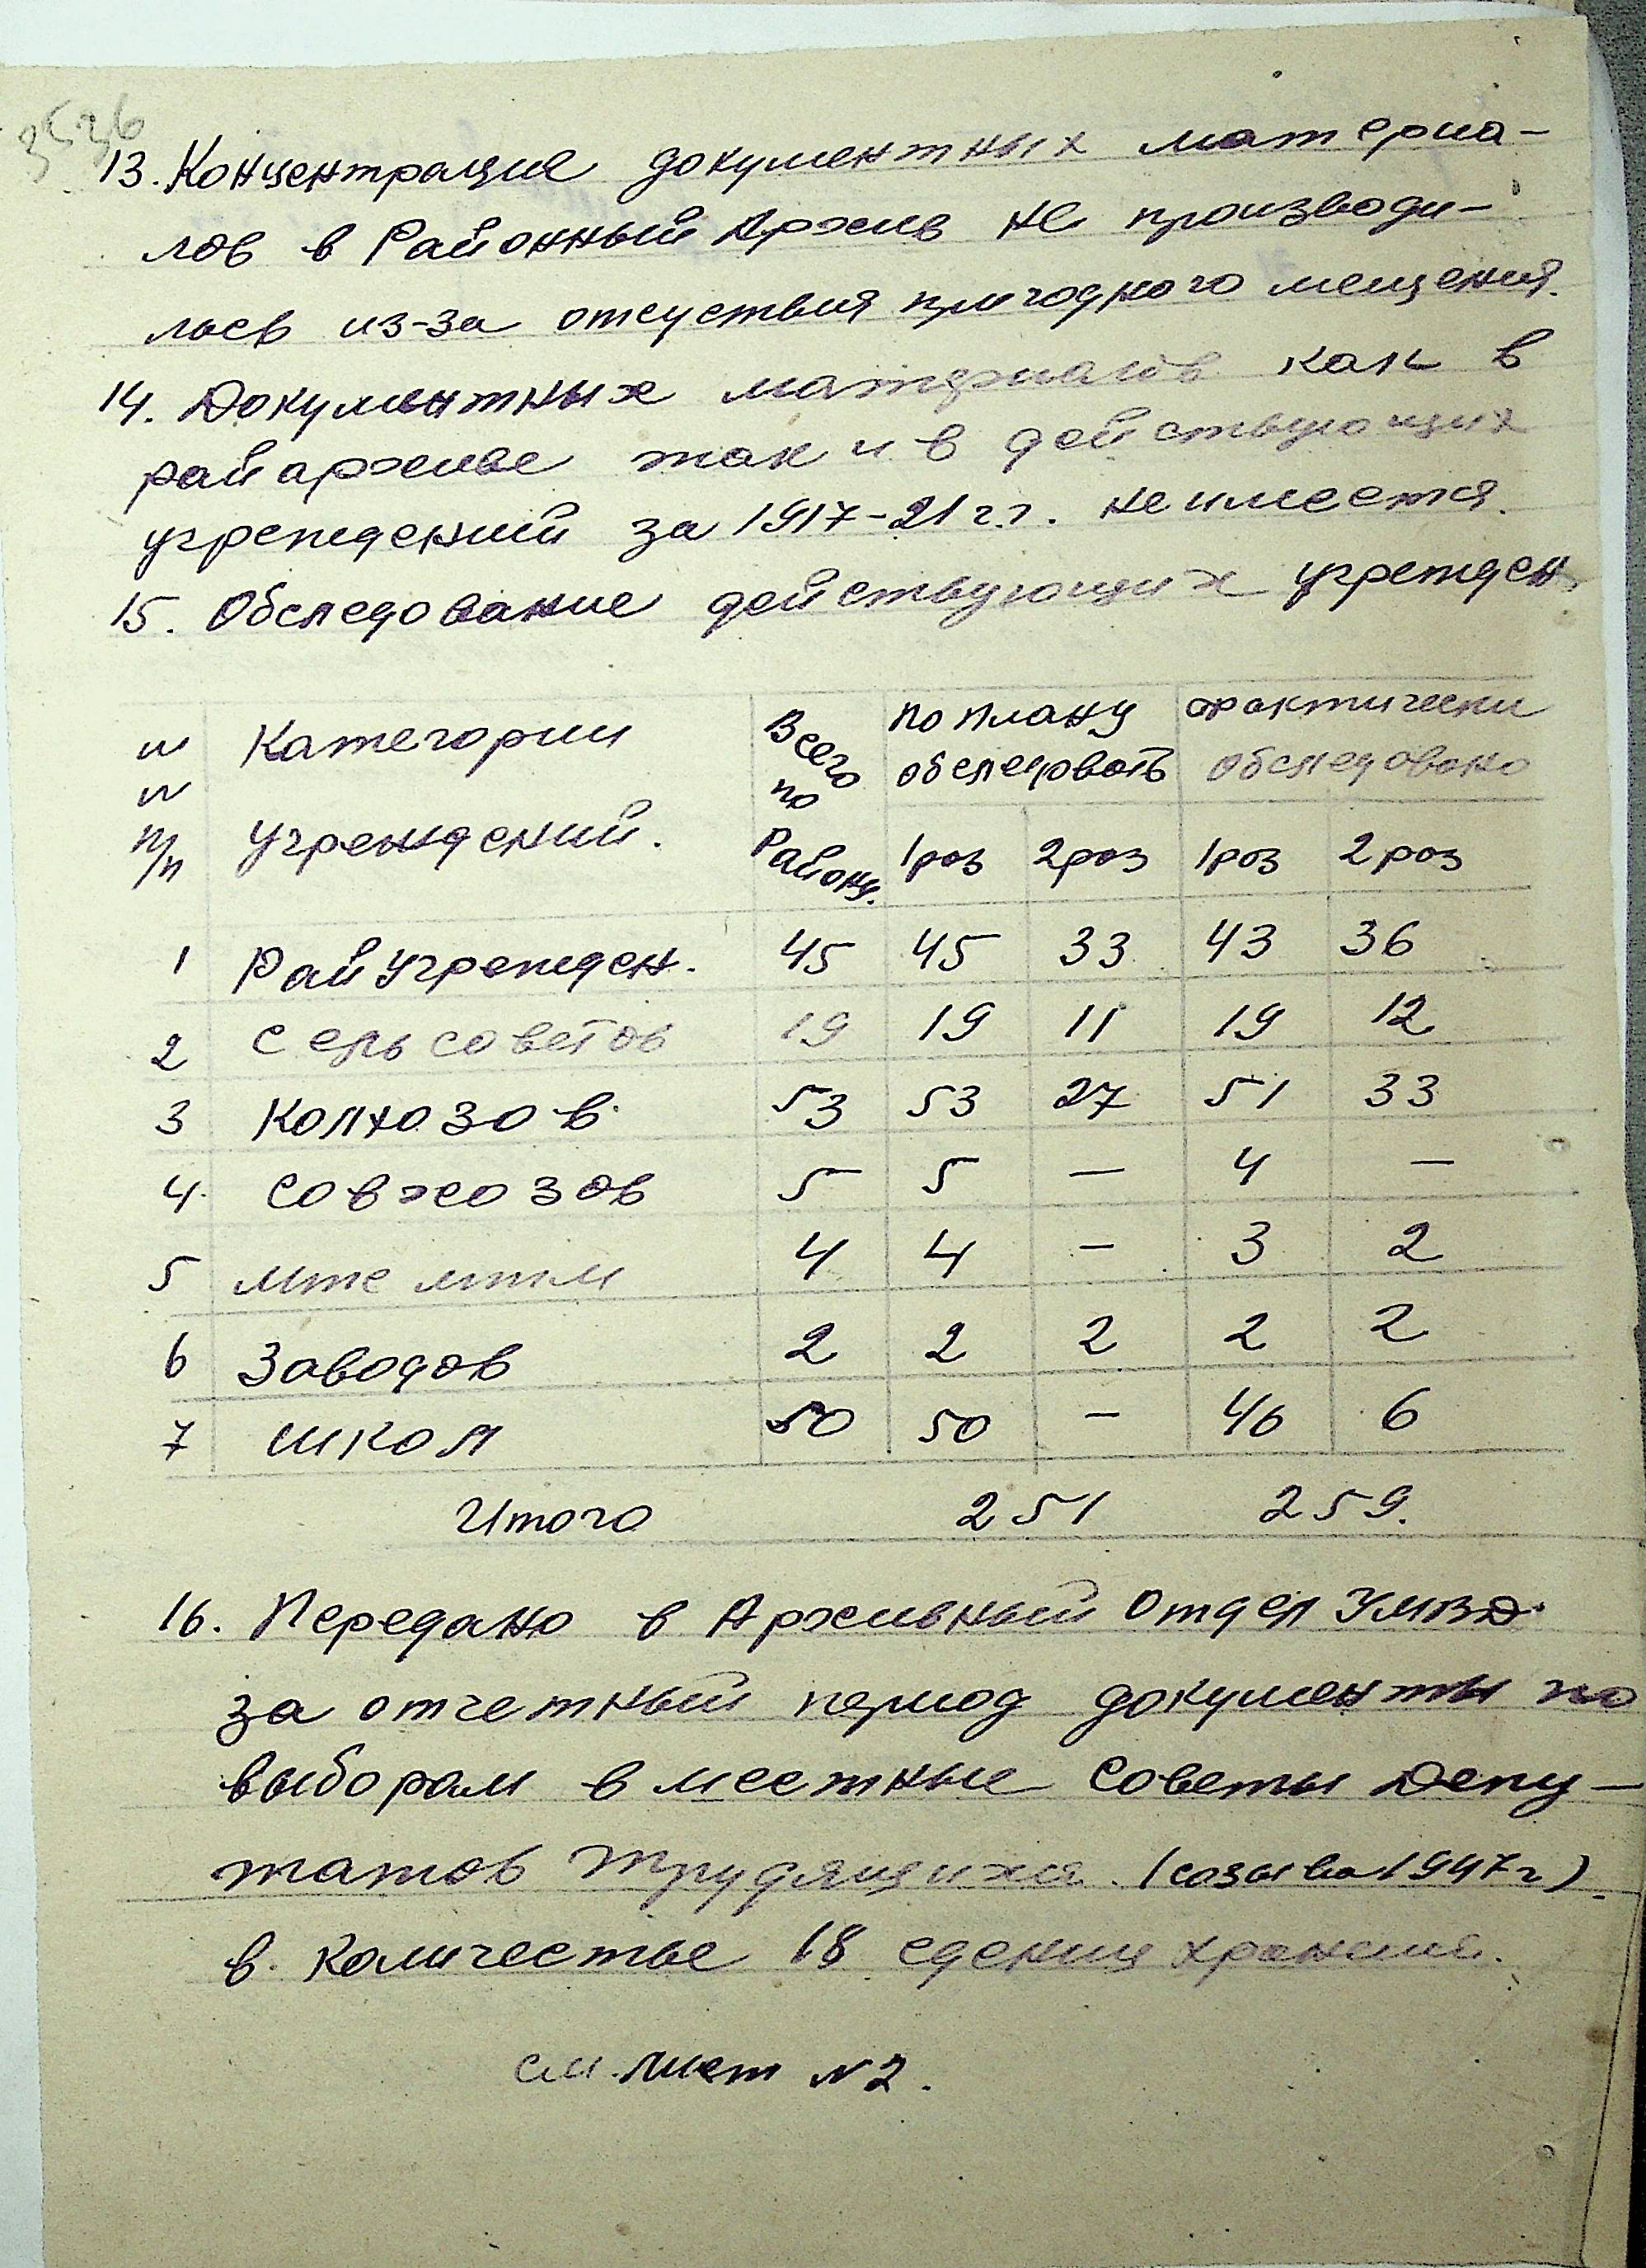 13. Концентрация документных материа-
лов в Районный Архив не производи-
лась из-за отсуствия пригодного мещения.
14. Документных материалов как в
райархиве так и в действующих
учреждений за 1917-21 г.г. не имеется.
15. Обследование действующих учрежден
№ № п/п Категории учреждений. Всего по Району. по плану обследовать фактически обследовано
1 раз 2 раз 1 раз 2 раз
1 Райучрежден. 45 45 33 43 36
2 сельсоветов 19 19 11 19 12
3 Колхозов 53 53 27 51 33
4. совхозов 5 5 — 4 —
5 мтс мтм 4 4 — 3 2
6 Заводов 2 2 2 2 2
7 школ 50 50 — 46 6
Итого 251 259.
16. Передано в Архивный Отдел УМВД
за отчетный период документы по
выборам в местные Советы Депу-
татов Трудящихся (созыва 1947 г)
в количестве 18 едениц хранений.
см. лист № 2.